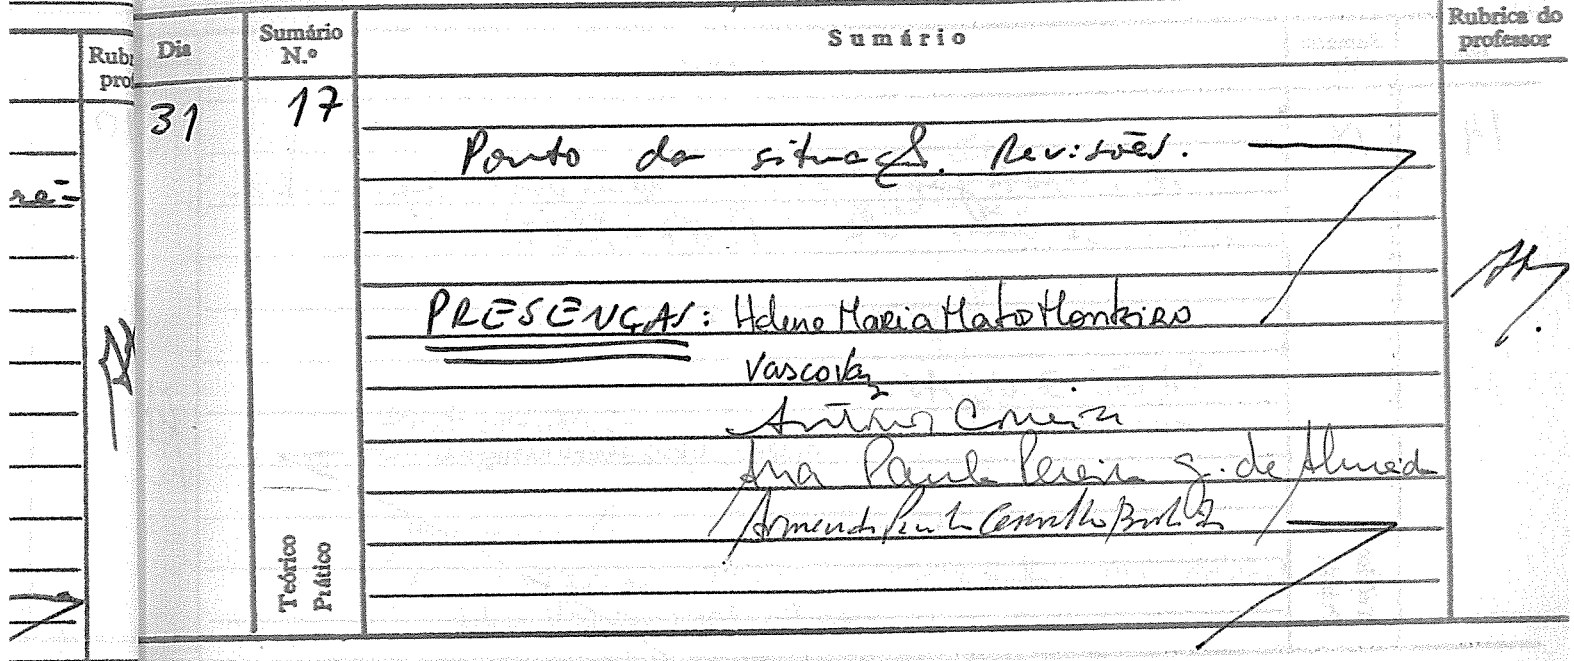 Rubrica do
Sumário
Sumário
Rub
Dia
N.º
professor
pro
31
17
Ponto da situação. Revisões.
re-
PRESENÇAS: Helena Maria Mato Monteiro
Vasco Vaz
António Correia
Ana Paula Pereira G. de Almeida
Armando Paulo Carvalho
Teórico
Prático